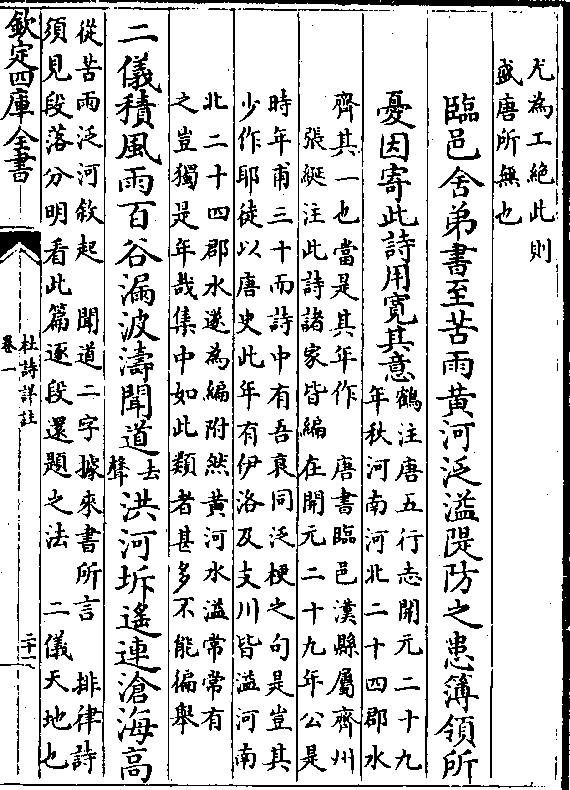 尤為工絶此則
盛唐所無也
臨邑舍弟書至苦雨黄河泛溢隄防之患簿領所
憂因寄此詩用寛其意
鶴注唐五行志開元二十九
年秋河南河北二十四郡水
齊其一也當是其年作 唐書臨邑漢縣屬齊州
張綖注此詩諸家皆編在開元二十九年公是
時年甫三十而詩中有吾衰同泛梗之句是豈其
少作耶徒以唐史此年有伊洛及支川皆溢河南
北二十四郡水遂為編附然黄河水溢常常有
之豈獨是年哉集中如此類者甚多不能徧舉
二儀積風雨百谷漏波濤聞道去聲洪河坼遙連滄海高
從苦雨泛河敘起 聞道二字據來書所言 排律詩
須見段落分明看此篇逐段還題之法 二儀天地也
欽定四庫全書
杜詩詳註
卷一
二十一